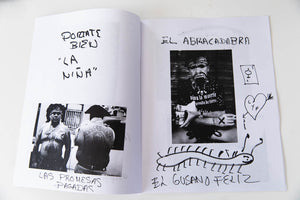 PORTATE
BIEN
"LA
NIÑA"
LAS PROMESAS
PAGADAS
EL ABRACADABRA
EL GUSANO FELIZ